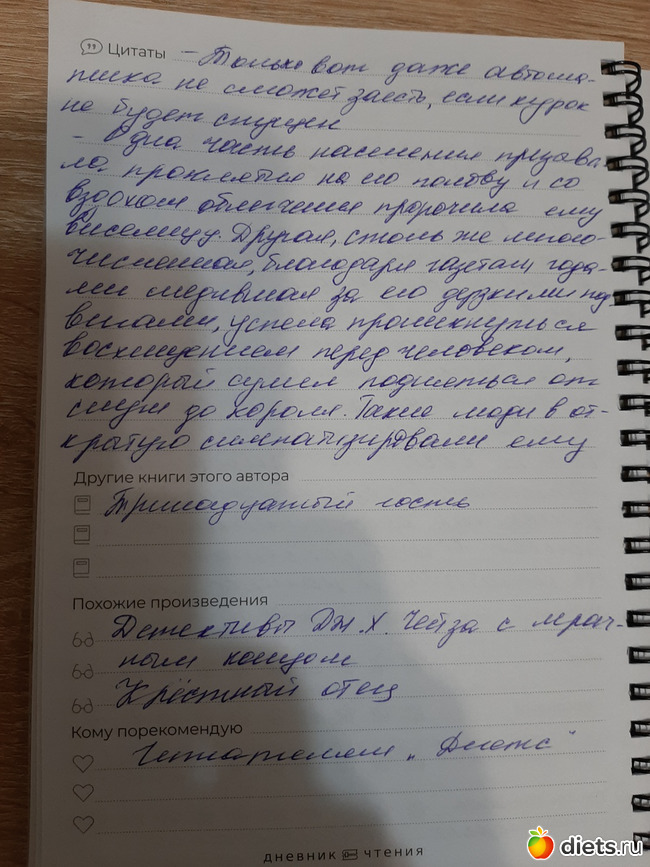 Цитаты - Только вот даже автома-
тика не сможет заесть, если курок
не будет спущен
- Одна часть населения призыва-
ла проклятия на его голову и со
вздохом облегчения пророчила ему
виселицу. Другая, столь же много-
численная, благодаря газетам года-
ми следившая за его дерзкими под-
вигами, успела проникнуться
восхищением перед человеком,
который сумел подняться от
слуги до короля. Такие люди в от-
крытую симпатизировали ему
Другие книги этого автора
Тринадцатый гость
Похожие произведения
Детективы Дж. Х. Чейза с мрач-
ным концом
Крёстный отец
Кому порекомендую
Читателям
дневник чтения
diets.ru